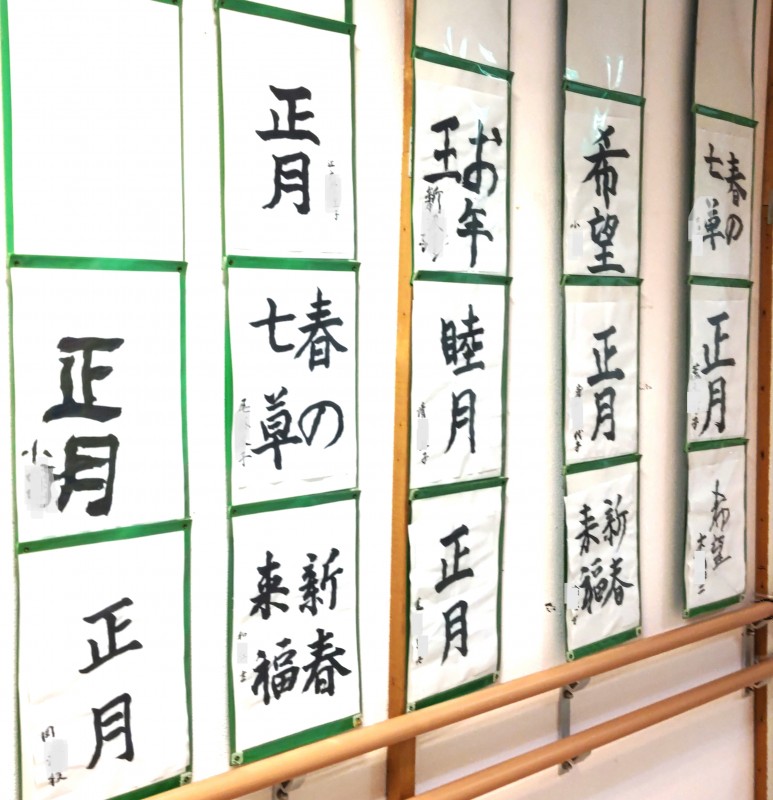 正月
正月
正月
春の
七草
新春
来福
お年
玉
睦月
正月
希望
正月
新春
来福
春の
七草
正月
希望